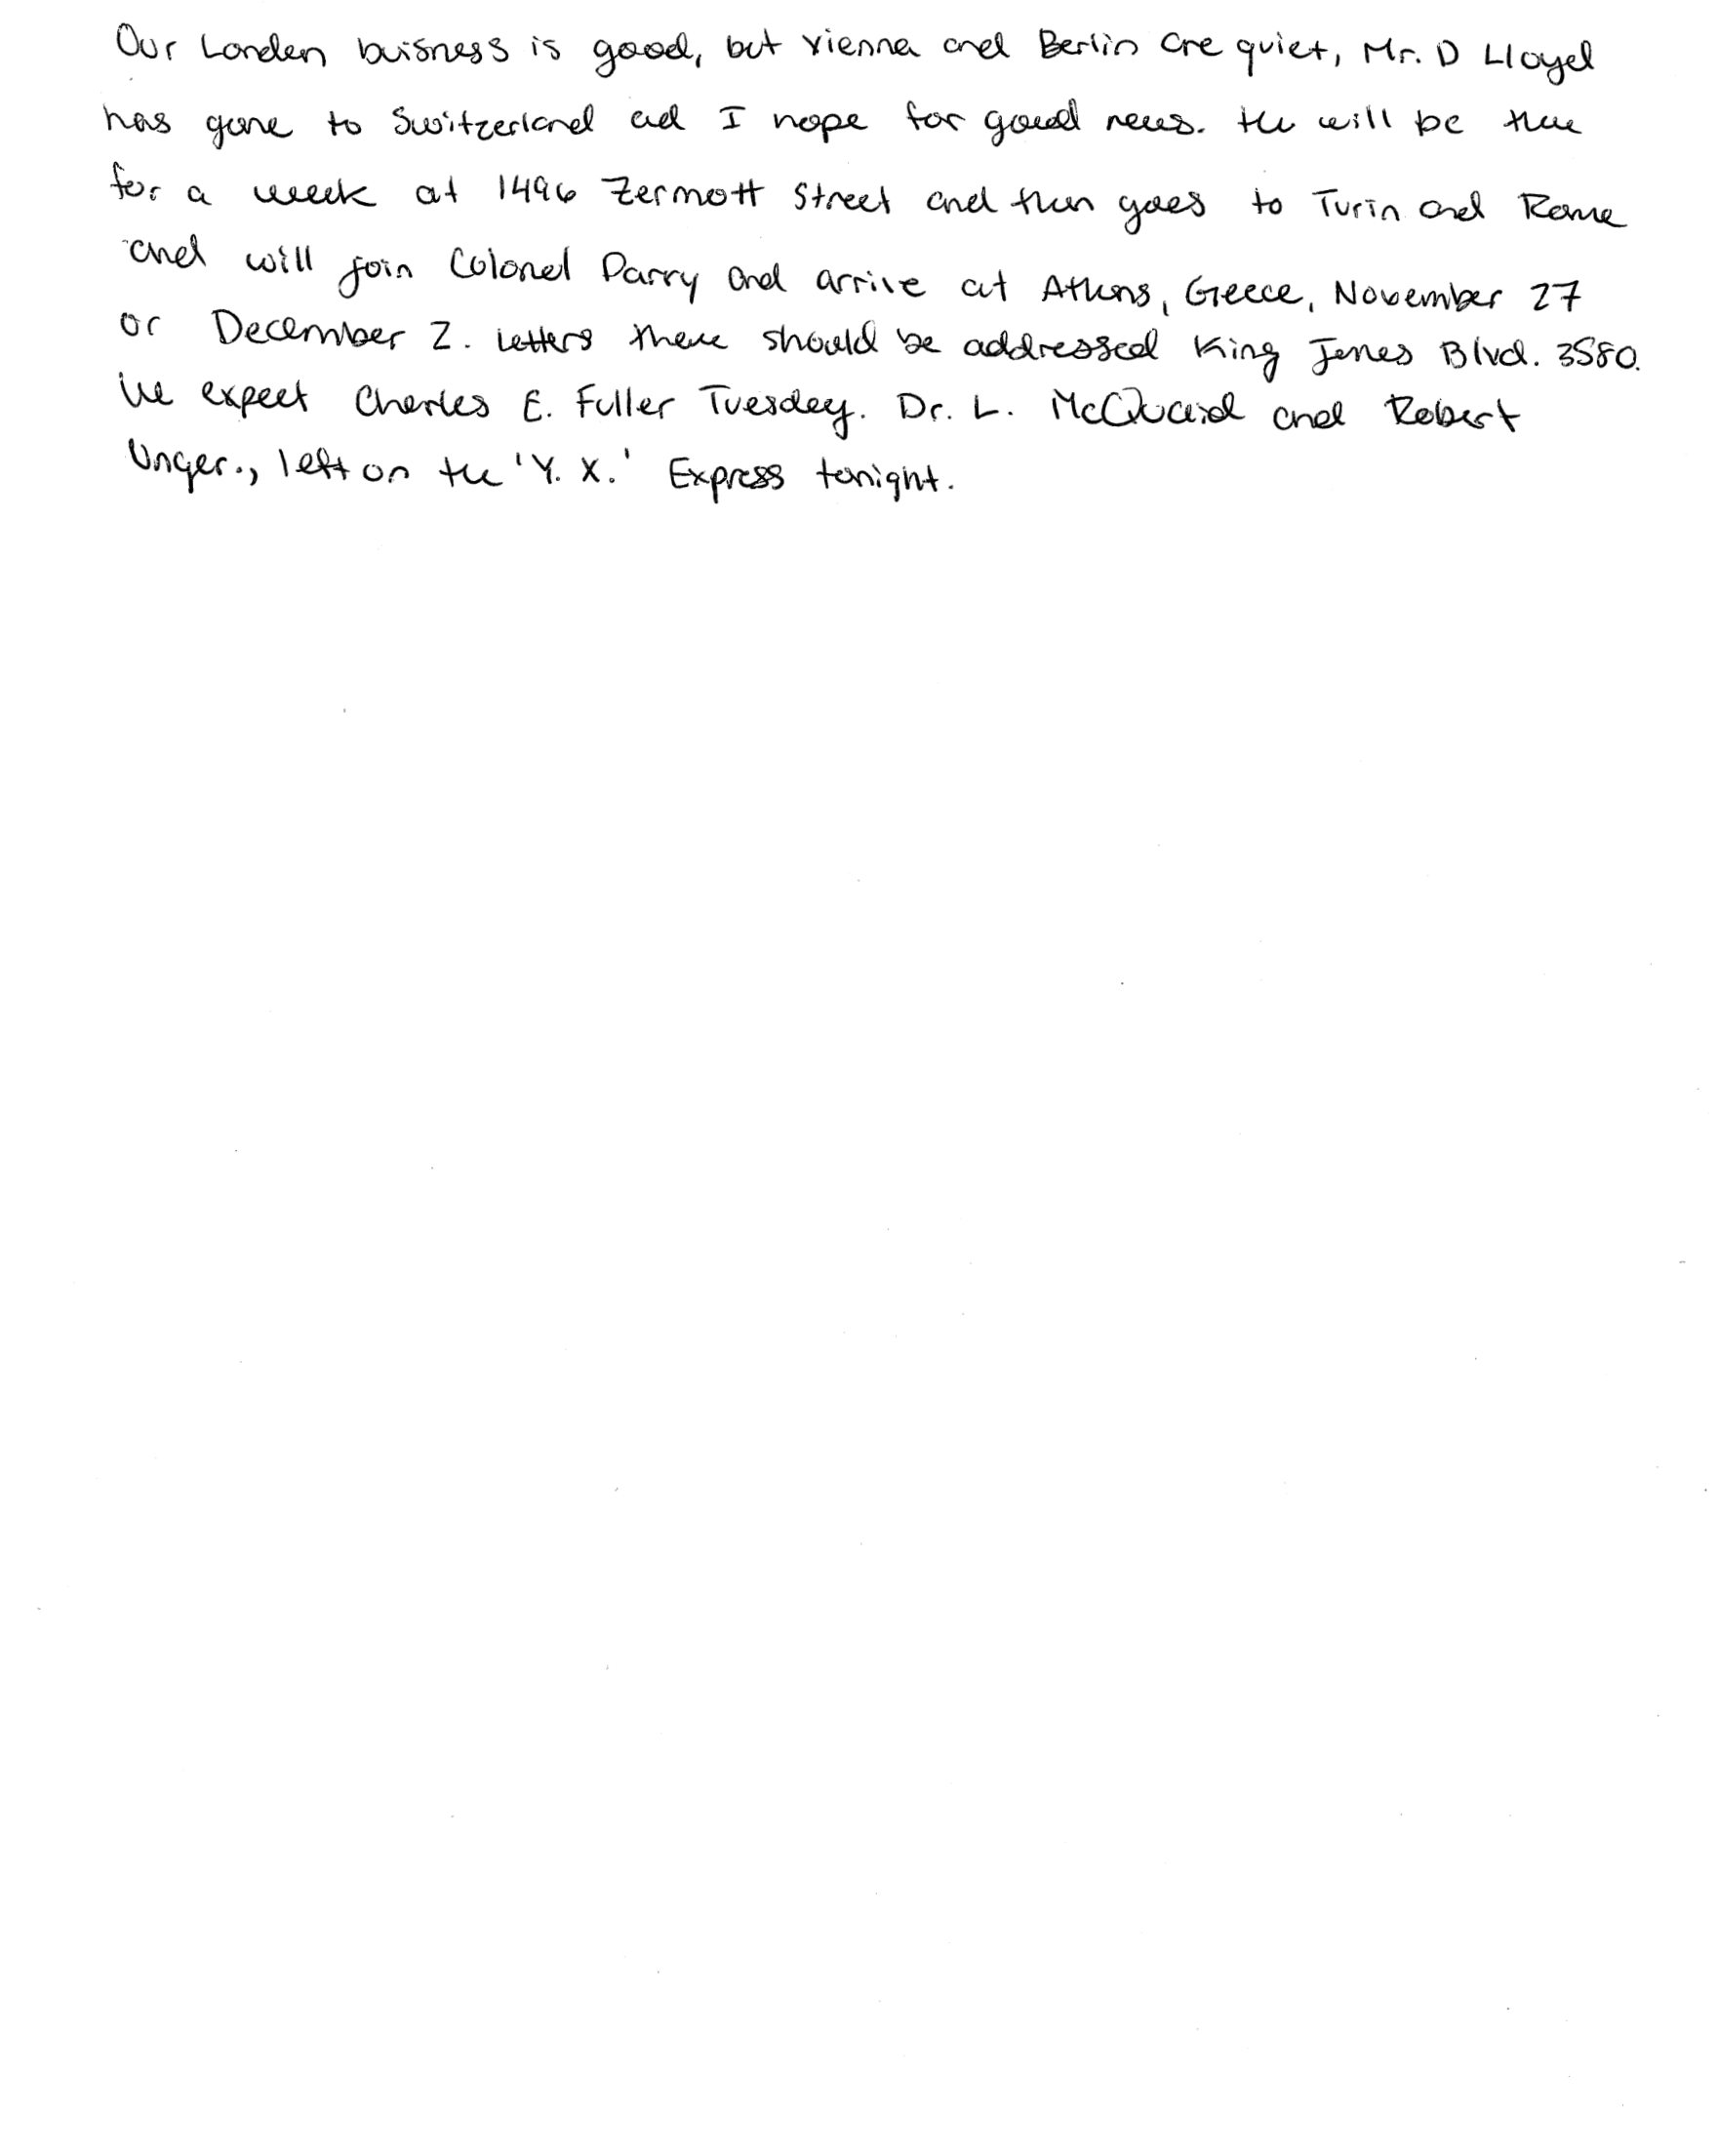 Our London buisness is good, but Vienna and Berlin are quiet, Mr. D Lloyd
has gone to Switzerland ad I hope for good news. He will be there
for a week at 1496 Zermott Street and then goes to Turin and Rome
and will join Colonel Parry and arrive at Athens, Greece, November 27
or December 2. Letters there should be addressed King James Blvd. 3580.
We expect Charles E. Fuller Tuesday. Dr. L. McQuaid and Robert
Unger., left on the 'Y. X.' Express tonight.